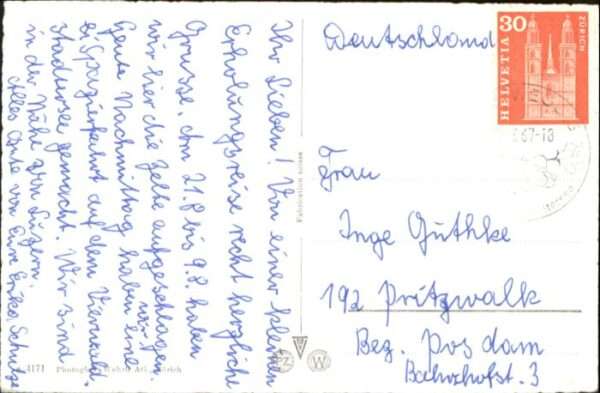 Ihr Lieben! Von einer schönen
Erholungsreise recht herzliche
Grüsse. Am 21.8 bis 9.8 haben
wir hier die Zelte aufgeschlagen.
Heute Nachmittag haben wir eine
Spazierfahrt auf dem Vierwald-
stadtersee gemacht. Wir sind
in der Nähe von Luzern.
Alles Gute von Eure Erika Schulz
4171
Fabrication suisse
Deutschland
30
HELVETIA
ZÜRICH
67-18
Frau
Inge Guthke
192 Pritzwalk
Bez. Posdam
Bahnhofst. 3